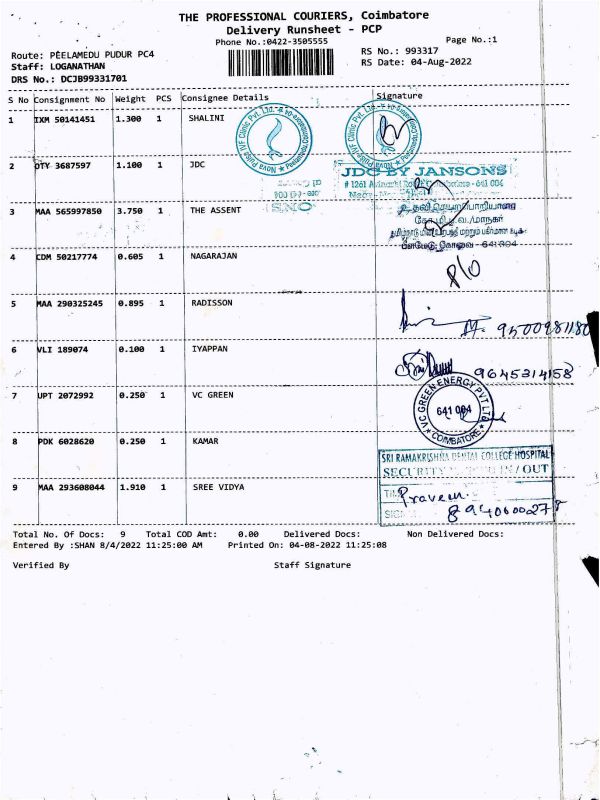 THE PROFESSIONAL COURIERS, Coimbatore
Delivery Runsheet - PCP
Phone No.:0422-3505555
Page No.:1
Route: PEELAMEDU PUDUR PC4
RS No.: 993317
Staff: LOGANATHAN
RS Date: 04-Aug-2022
DRS No.: DCJB99331701
S No Consignment No Weight PCS Consignee Details Signature
1 IXM 50141451 1.300 1 SHALINI
Nova Pulse IVF Clinic Pvt. Ltd.
2 DTY 3687597 1.100 1 JDC
JDC BY JANSONS
# 1261 Coimbatore - 641 004
3 MAA 565997850 3.750 1 THE ASSENT
கோவை - 641 004
4 CDM 50217774 0.605 1 NAGARAJAN
P/O
5 MAA 290325245 0.895 1 RADISSON
6 VLI 189074 0.100 1 IYAPPAN
9645314158
7 UPT 2072992 0.250 1 VC GREEN
VC GREEN ENERGY PVT LTD
641 004
COIMBATORE
8 PDK 6028620 0.250 1 KAMAR
SRI RAMAKRISHNA DENTAL COLLEGE HOSPITAL
SECURITY IN / OUT
9 MAA 293608044 1.910 1 SREE VIDYA
Praveen
Total No. Of Docs: 9 Total COD Amt: 0.00 Delivered Docs: Non Delivered Docs:
Entered By :SHAN 8/4/2022 11:25:00 AM Printed On: 04-08-2022 11:25:08
Verified By Staff Signature